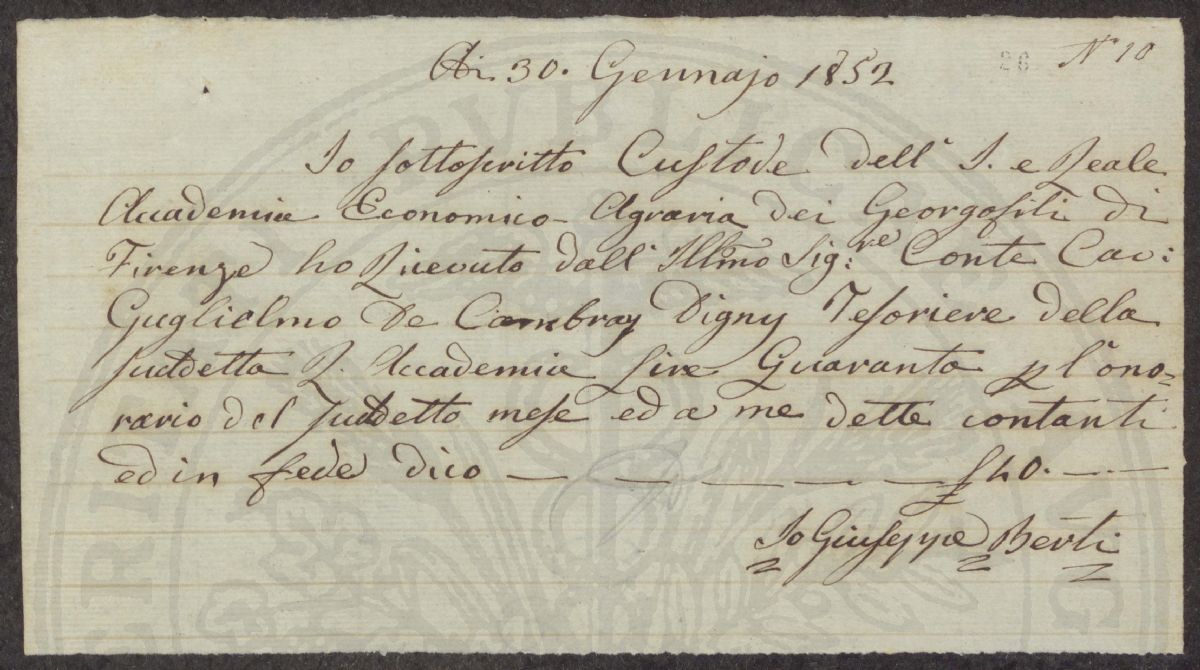 26 N° 10
Ai 30. Gennajo 1852
Io sottoscritto Custode dell' I. e Reale
Accademia Economico-Agraria dei Georgofili di
Firenze ho Ricevuto dall' Illmo Sig:re Conte Cav:
Guglielmo De Cambray Digny Tesoriere della
suddetta R. Accademia Lire Quaranta p l'ono=
rario del suddetto mese ed a me dette contanti
ed in fede dico — — — — — £ 40. — —
Io Giuseppe Berti